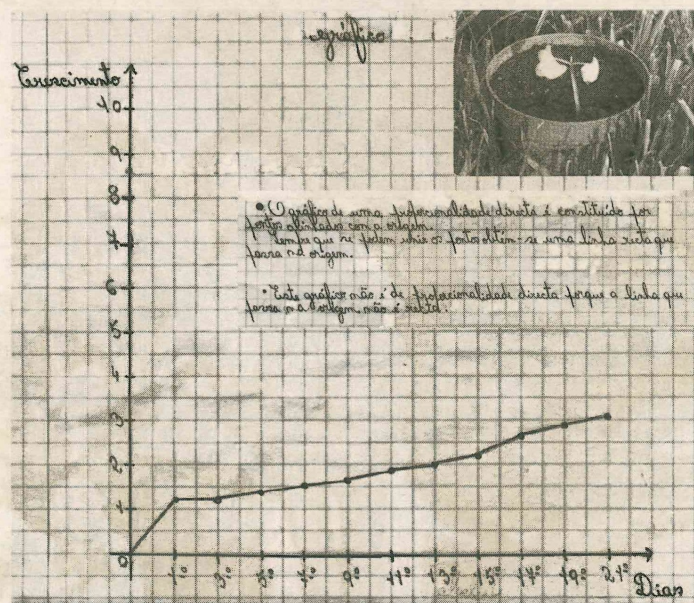 gráfico
Crescimento
10
9
8
7
6
5
4
3
2
1
0
• O gráfico de uma proporcionalidade directa é constituído por
pontos alinhados com a origem.
Sempre que se podem unir os pontos obtém-se uma linha recta que
passa na origem.
• Este gráfico não é de proporcionalidade directa porque a linha que
passa na origem não é recta.
1º 3º 5º 7º 9º 11º 13º 15º 17º 19º 21º
Dias